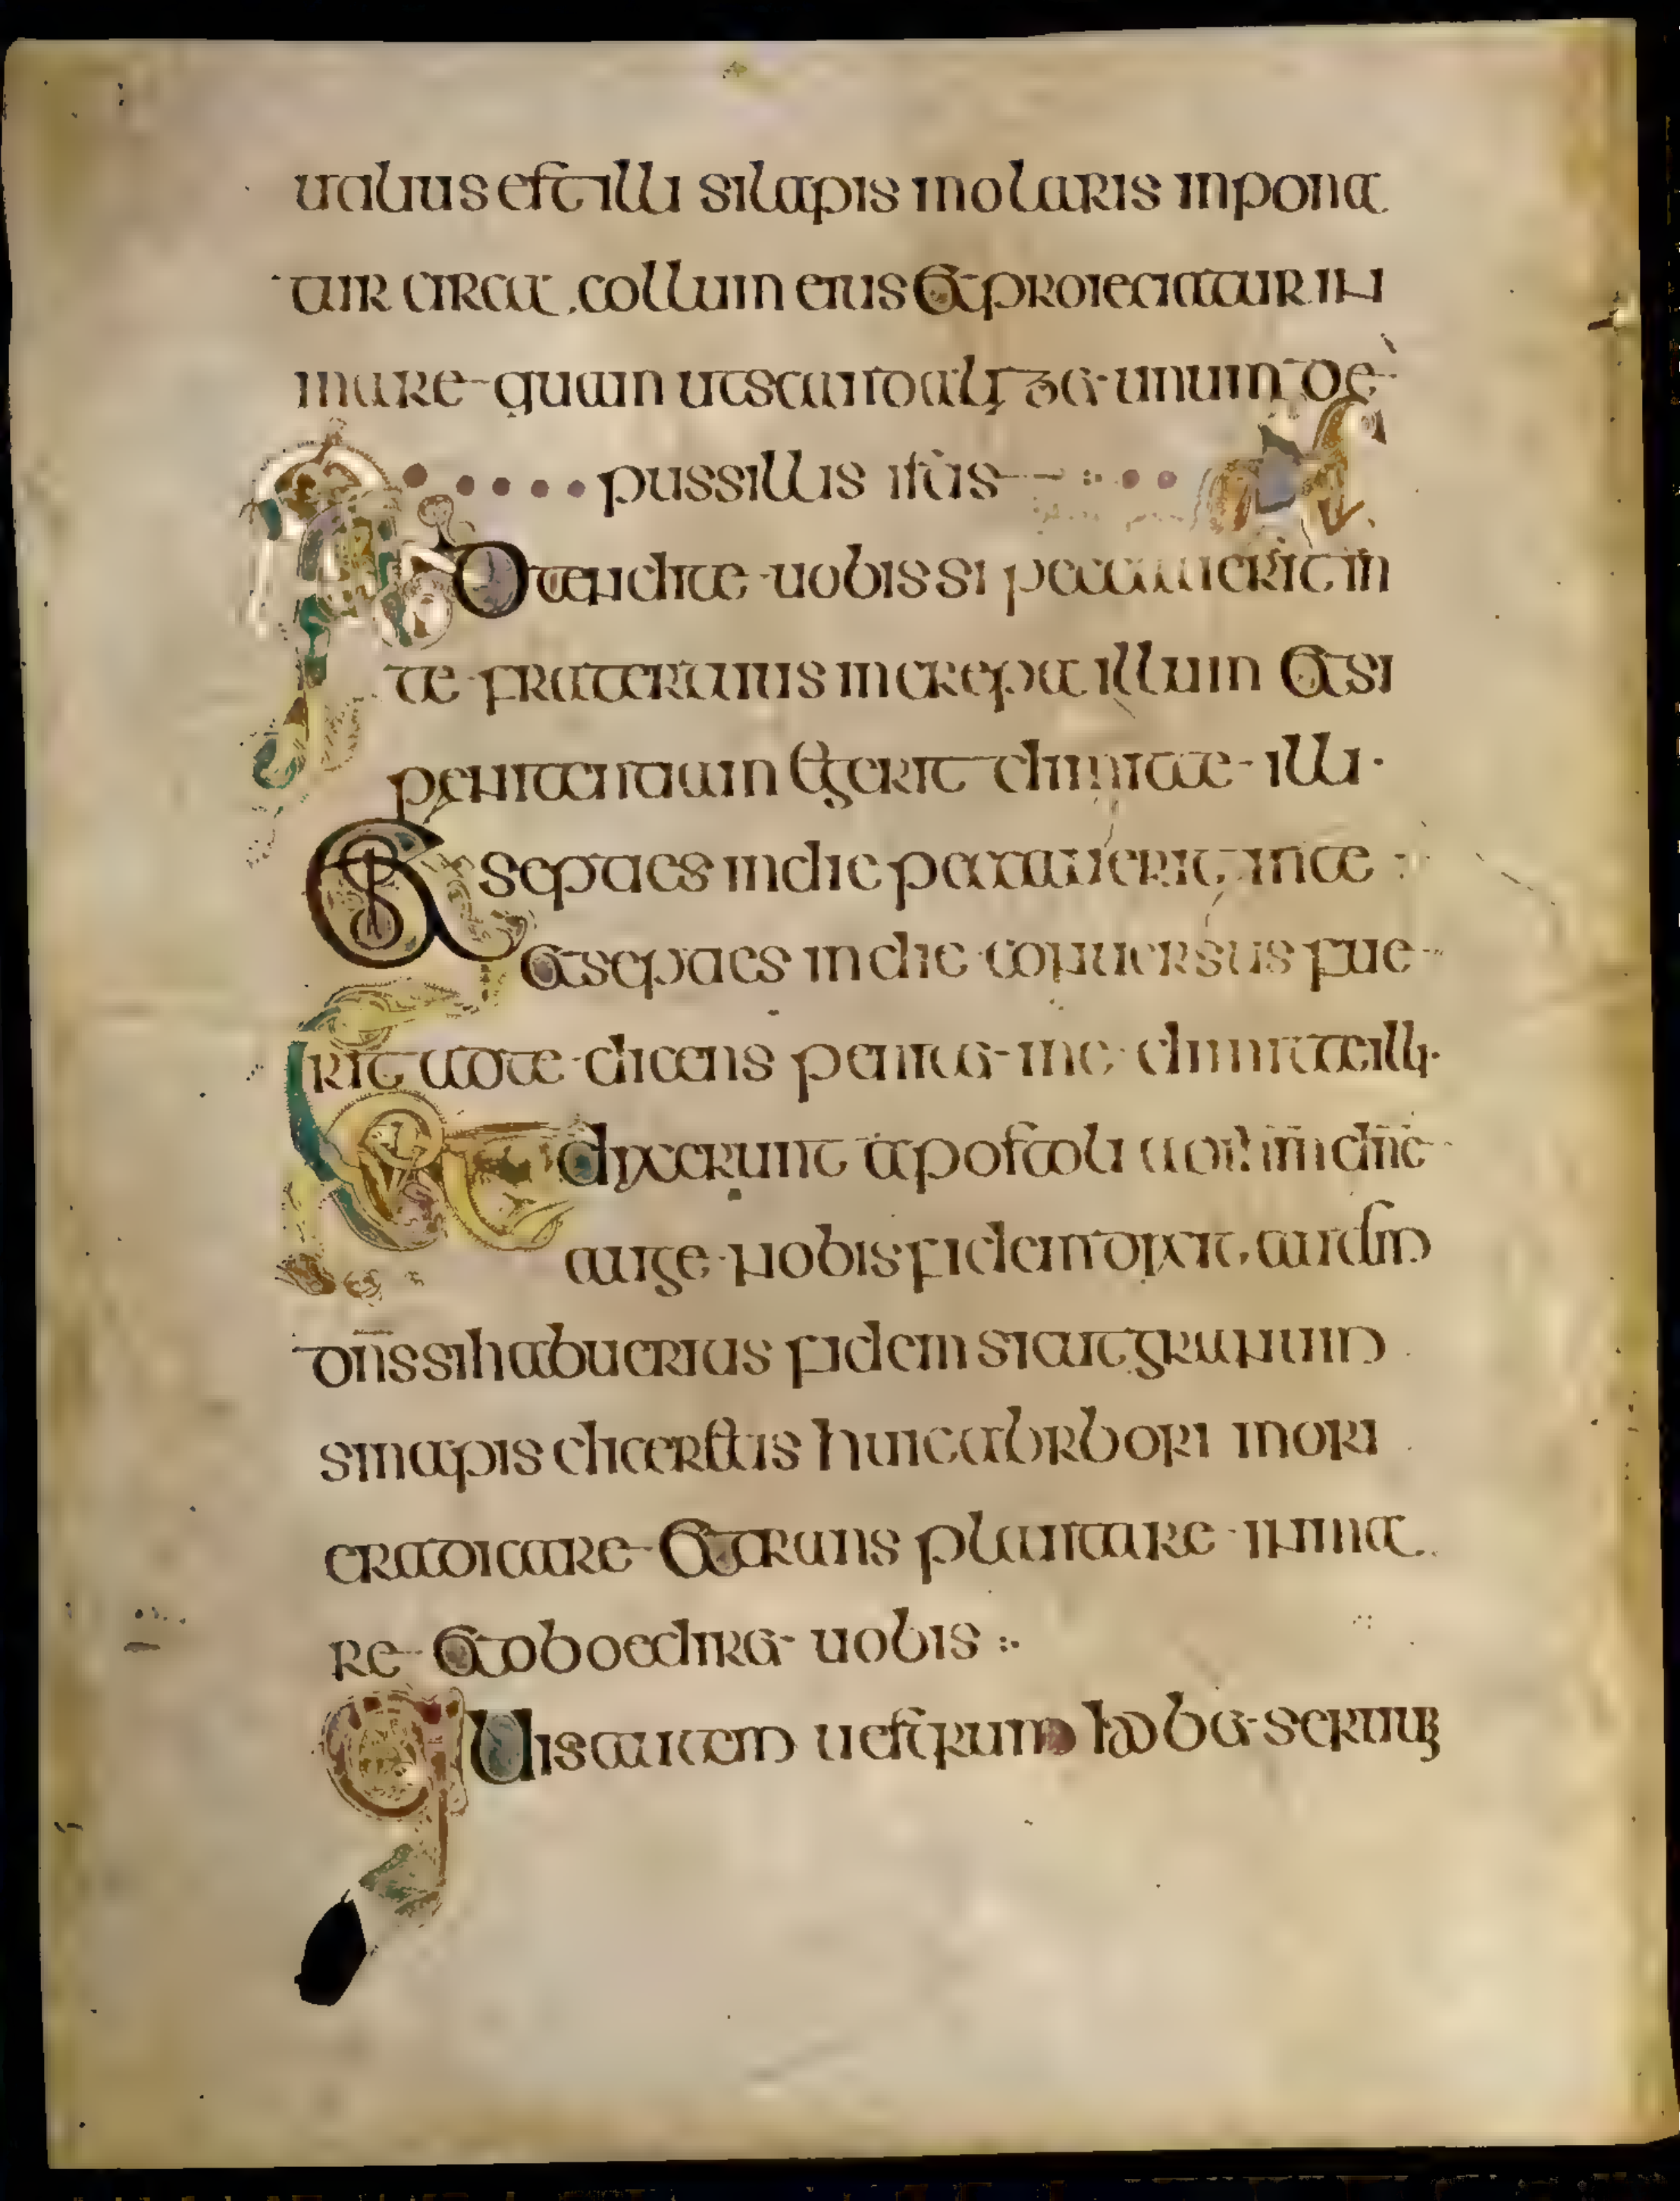 utilius est illi si lapis molaris inpona
tur circa collum eius et proieciatur in
mare quam ut scandalizet unum de
pussillis istis
Adtendite uobis si peccauerit in
te frater tuus increpa illum et si
penitentiam egerit dimitte illi
Et si septies in die peccauerit in te
et septies in die conuersus fue
rit ad te dicens penitet me dimitte illi
Et dixerunt apostoli dne
auge nobis fidem dixit autem
dns si habueritis fidem sicut granum
sinapis diceretis huic arbori mori
eradicare et trans plantare in ma
re et oboediret uobis
Quis autem uestrum habet seruum